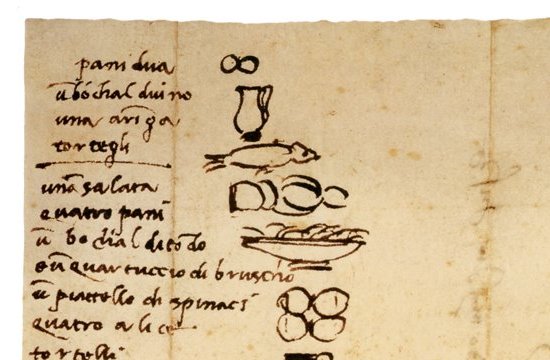 pani dua
ū bochal di vino
una aringa
tortegli
una salata
quatro pani
ū bochal di tōdo
e ū quartuccio di bruscho
ū piattello di spinaci
quatro alice
tortelli